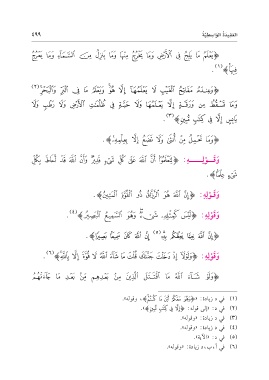 العقيدة الواسطية
٤٩٩
﴿يَعْلَمُ مَا يَلِجُ فِي الْأَرْضِ وَمَا يَخْرُجُ مِنْهَا وَمَا يَنزِلُ مِنَ السَّمَاءِ وَمَا يَعْرُجُ
فِيهَا﴾(١).
﴿وَعِندَهُ مَفَاتِحُ الْغَيْبِ لَا يَعْلَمُهَا إِلَّا هُوَ وَيَعْلَمُ مَا فِي الْبَرِّ وَالْبَحْرِ(٢)
وَمَا تَسْقُطُ مِن وَرَقَةٍ إِلَّا يَعْلَمُهَا وَلَا حَبَّةٍ فِي ظُلُمَاتِ الْأَرْضِ وَلَا رَطْبٍ وَلَا
يَابِسٍ إِلَّا فِي كِتَابٍ مُّبِينٍ﴾(٣).
﴿وَمَا تَحْمِلُ مِنْ أُنثَى وَلَا تَضَعُ إِلَّا بِعِلْمِهِ﴾.
وَقَوْلِهِ: ﴿لِتَعْلَمُوا أَنَّ اللَّهَ عَلَى كُلِّ شَيْءٍ قَدِيرٌ وَأَنَّ اللَّهَ قَدْ أَحَاطَ بِكُلِّ
شَيْءٍ عِلْمًا﴾.
وَقَوْلِهِ: ﴿إِنَّ اللَّهَ هُوَ الرَّزَّاقُ ذُو الْقُوَّةِ الْمَتِينُ﴾.
وَقَوْلِهِ: ﴿لَيْسَ كَمِثْلِهِ شَيْءٌ وَهُوَ السَّمِيعُ الْبَصِيرُ﴾(٤).
﴿إِنَّ اللَّهَ نِعِمَّا يَعِظُكُم بِهِ(٥) إِنَّ اللَّهَ كَانَ سَمِيعًا بَصِيرًا﴾.
وَقَوْلِهِ: ﴿وَلَوْلَا إِذْ دَخَلْتَ جَنَّتَكَ قُلْتَ مَا شَاءَ اللَّهُ لَا قُوَّةَ إِلَّا بِاللَّهِ﴾(٦).
﴿وَلَوْ شَاءَ اللَّهُ مَا اقْتَتَلَ الَّذِينَ مِنْ بَعْدِهِم مِّنْ بَعْدِ مَا جَاءَتْهُمُ
(٢) في د: «إلى قوله: ﴿إِلَّا فِي كِتَابٍ مُّبِينٍ﴾».
(٣) في د زيادة: «وقوله».
(٤) في د زيادة: «وقوله».
(٥) في د: «الآية».
(٦) في أ، ب، د زيادة: «وقوله».